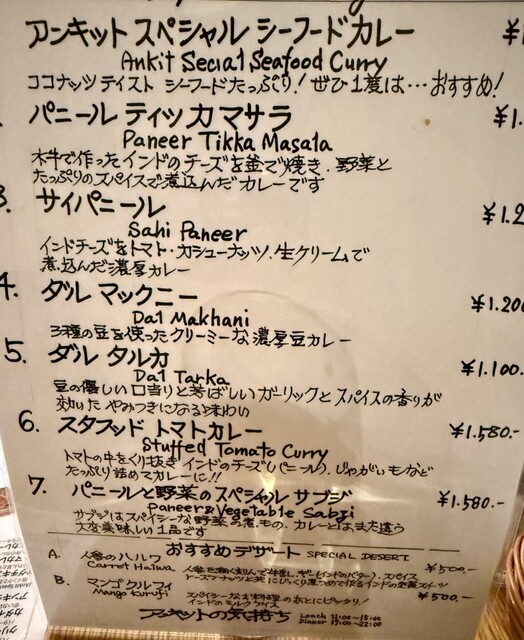 アンキット スペシャル シーフードカレー ¥1
Ankit Secial Seafood Curry
ココナッツテイスト シーフードたっぷり! ぜひ1度は…おすすめ!
パニール ティッカ マサラ ¥1.
Paneer Tikka Masala
水牛で作ったインドのチーズを釜で焼き、野菜と
たっぷりのスパイスで煮込んだカレーです
3. サイパニール ¥1.2
Sahi Paneer
インドチーズをトマト・カシューナッツ、生クリームで
煮込んだ濃厚カレー
4. ダル マックニー ¥1.200
Dal Makhani
3種の豆を使ったクリーミーな濃厚豆カレー
5. ダル タルカ ¥1.100.
Dal Tarka
豆の優しい口当りと芳ばしいガーリックとスパイスの香りが
効いた やみつきになる味わい
6. スタフッド トマトカレー ¥1.580-
Stuffed Tomato Curry
トマトの中をくり抜き インドのチーズ(パニール)、じゃがいもなど
たっぷり詰めてカレーに!!
7. パニールと野菜のスペシャル サブジ ¥1.580-
Paneer&Vegetable Sabzi
サブジはスパイシーな野菜の煮もの、カレーとはまた違う
大変美味しい1品です
おすすめデザート SPECIAL DESERT.
A. 人参のハルワ ¥500-
Carrot Halwa 人参を細く刻んで牛乳、ギー(インドのバター)、スパイス
ドースナッツと共にじっくり煮つめて作るインドの定番スイーツ
B. マンゴ クルフィ ¥500-
Mango kurufi スパイシーなお料理のあとにピッタリ!
インドのミルクアイス
アンキットの気持ち Lunch 11:00~15:00
Dinner 17:00~22:00